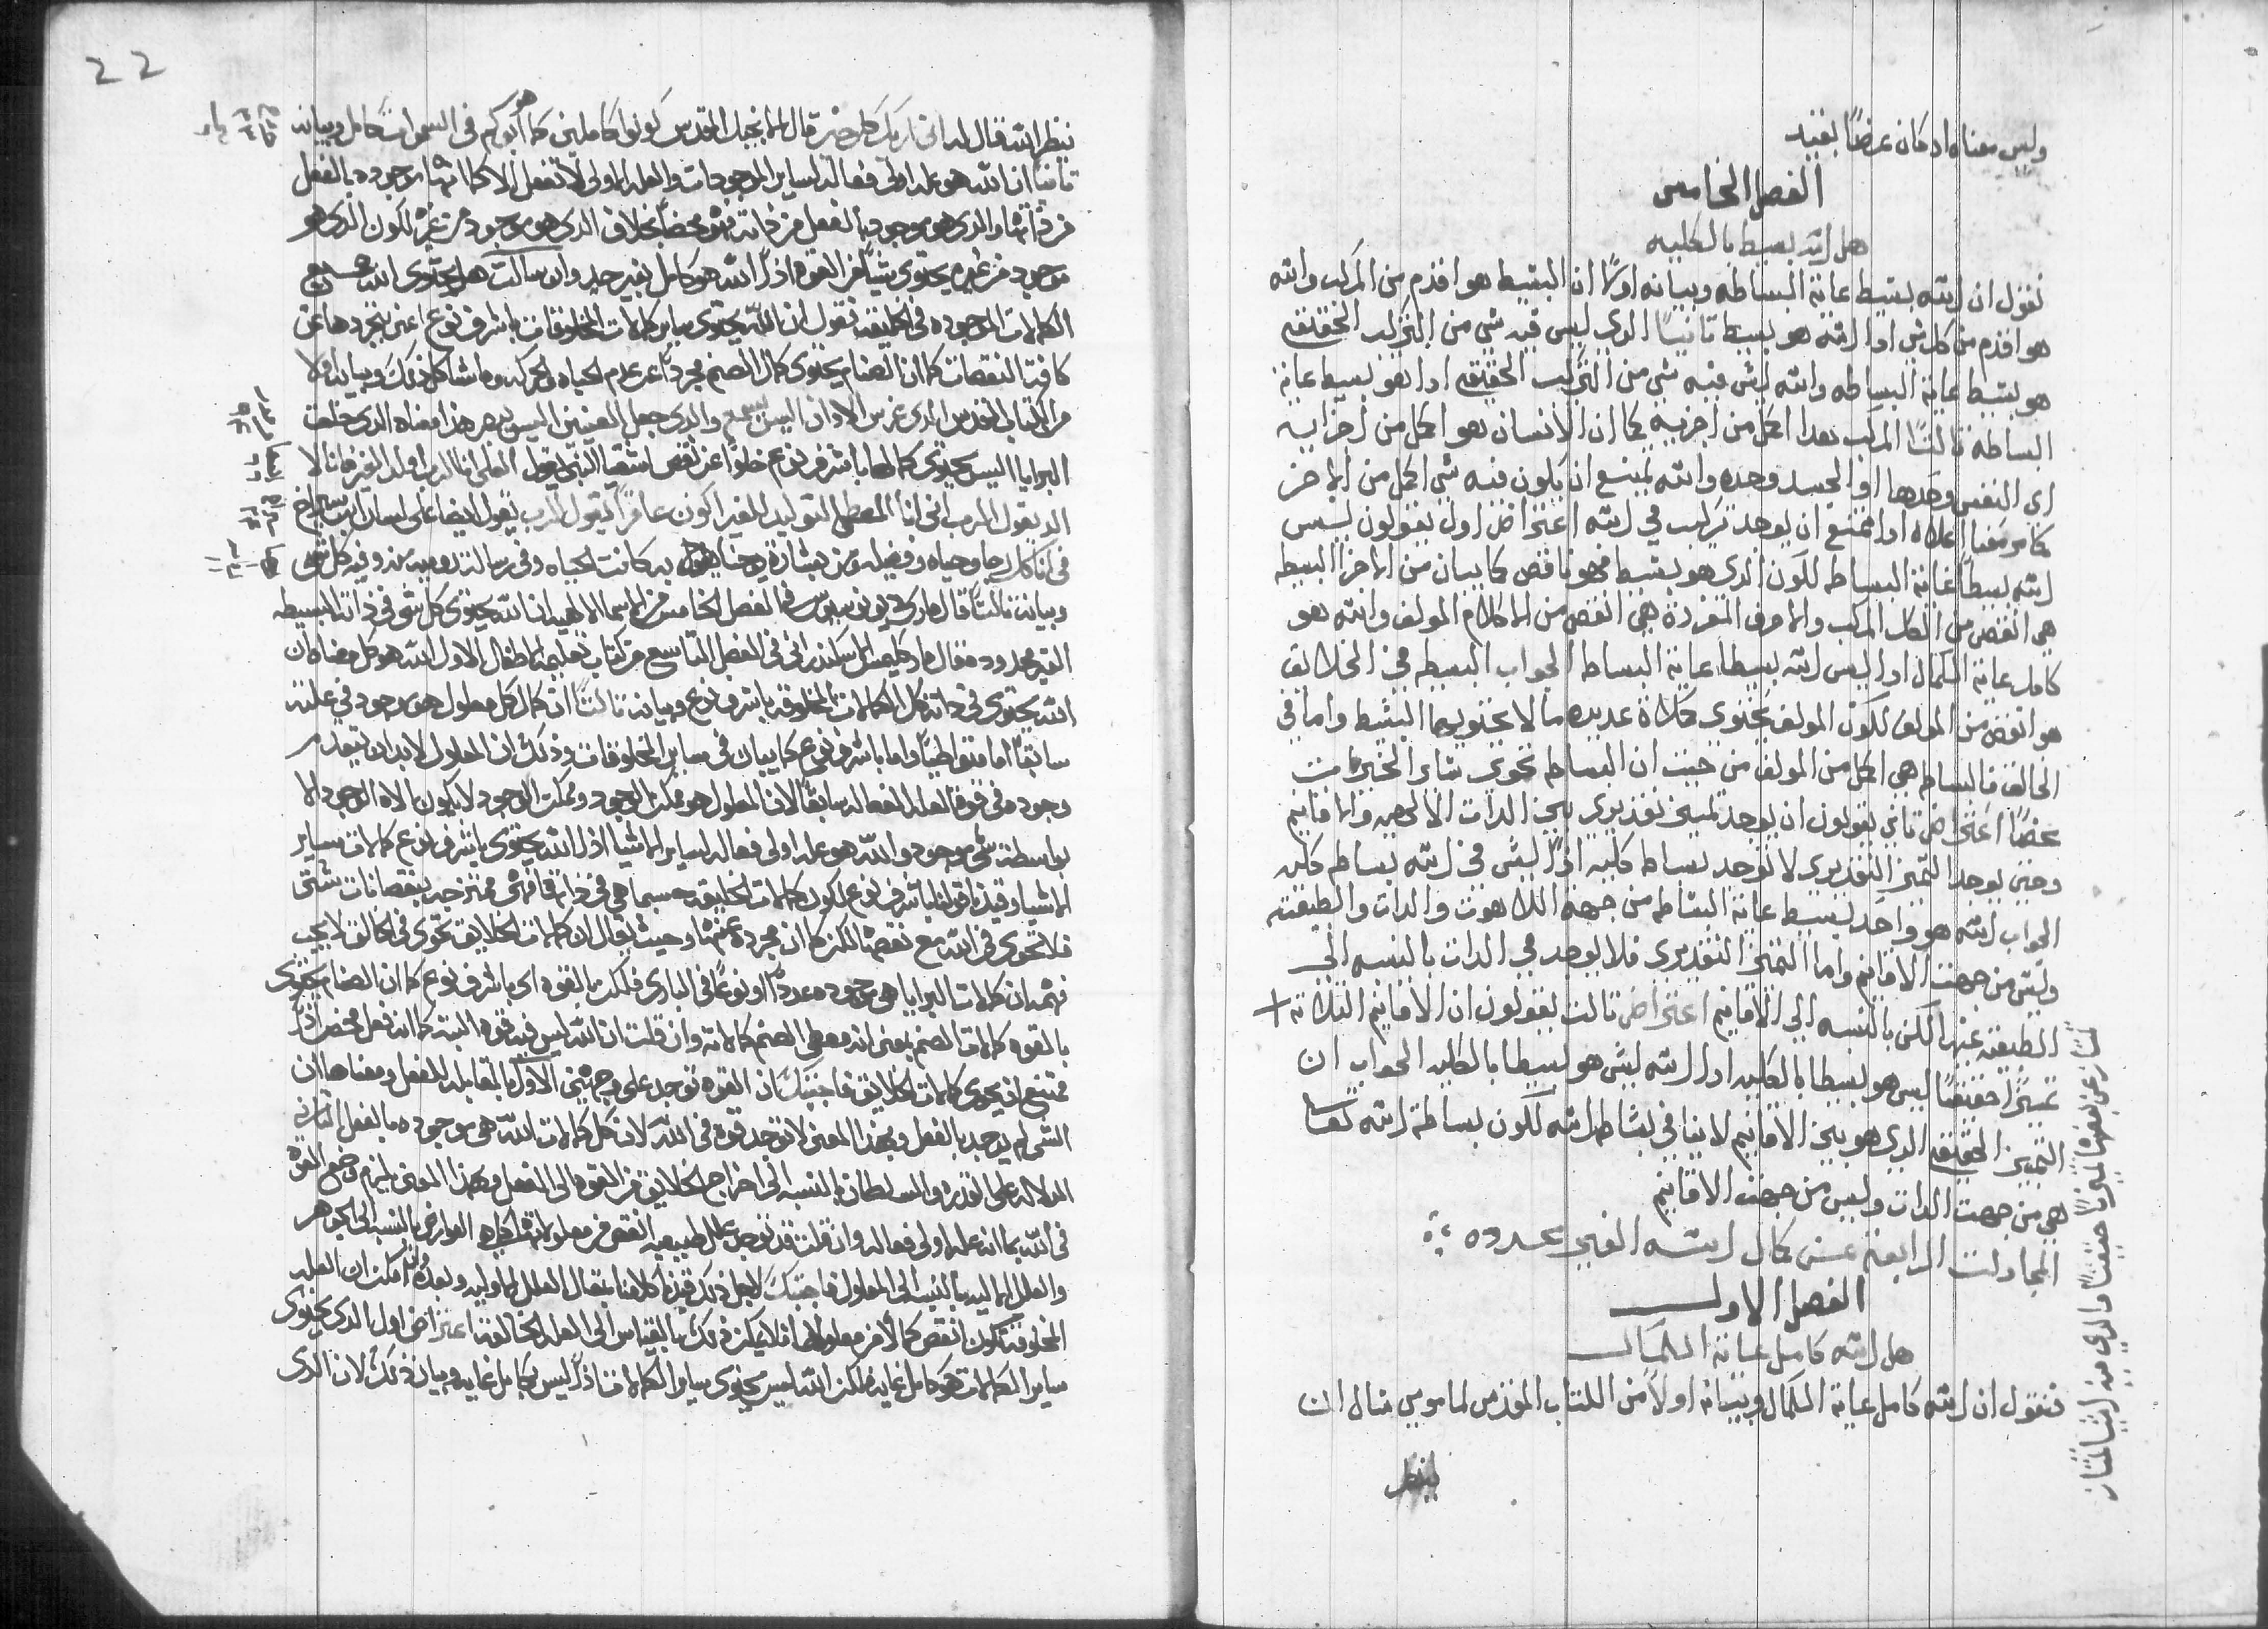 وليس معناه اد كان عرضًا بفنيد
الفصل الخامس
هل الله بسيط بالكليه
نقول ان الله بسيط غاية البساطه وبيانه اولاً ان البسيط هو اقدم من المركب والله
هو اقدم من كل شي ادا الله هو بسيط تانيًا الدي ليس فيه شي من التركيب الحقيقيه
هو بسيط غاية البساطه والله ليس فيه شي من التركيب الحقيقيه ادا هو بسيط غاية
البساطه تالتًا المركب هدا اكمل من اجزييه كما ان الانسان هو اكمل من اجزاييه
اي النفس وحدها او الجسد وحده والله يمتنع ان يكون فيه شي اكمل من الاخر
كما مر معنا اعلاه ادا ممتنع ان يوجد تركيب في الله اعتراض اول يقولون ليس
الله بسيطًا غاية البساطه لكون الدي هو بسيط فهو ناقص كما يبان من الاخر البسيطه
هي انقص من الكل المركب والاحرف المفردة هي انقص من الاكلام المولف والله هو
كامل غاية الكمال ادا ليس الله بسيطا غاية البساطه الجواب البسيطه في الخلايق
هو انقص من المولف لكون المولف يحتوي كمالاة عديده ما لا يحتويها البسيط واما في
الخالق فالبساطه هي اكمل من المولف من حيت ان البساطه تحوي ساير الخيرات
محضًا اعتراض تاني يقولون ان يوجد تمييز تقديري بين الدات الالهيه والاقانيم
وحين يوجد التميز التقديري لا توجد بساطه كليه ادًا ليس في الله بساطه كليه
الجواب الله هو واحد بسيط غاية البساطه من جهة اللاهوت والدات والطبيعه
وليس من جهت الاقانيم واما التميز التقديري فلا يوجد في الدات بالنسبه الى
الطبيعه عينها لكن بالنسبه الي الاقانيم اعتراض تالت يقولون ان الاقانيم التلاته +
تميزًا حقيقيًا ليس هو بسيطا بالكليه ادا الله ليس هو بسيطا بالكليه الجواب ان
التمييز الحقيقيه الدي هو بين الاقانيم لا ينافي بساطة الله لكون بساطة الله
هي من جهت الدات وليس من جهت الاقانيم
المجادلت الرابعة عن كمال الله الغير محدوده
الفصل الاول
هل الله كامل غاية الكمال
فنقول ان الله كامل غاية الكمال وبيانه اولاً من الكتاب المقدس لما موسى سال ان
ينظر
22
ينظر الله قال له اني اريك كل خير قال الانجيل المقدس كونوا كاملين كما هو ابوكم في السموات كامل وبيانه
تانيًا ان الله هو علة اولى فعاله لساير الموجودات والعله الاولى لا تفعل الا كما انها موجوده بالفعل
من داتها والدي هو موجود بالفعل من داته فهو محضًا بخلاف الدي هو موجود من غيره لكون الدي هو
موجود من غيره يحتوي شيا من القوه اذًا الله هو كامل بغير حد وان سالت هل يحتوي الله جميع
الكمالات الموجوده في الخليقه نقول ان الله يحتوي ساير كمالات المخلوقات باشرف نوع اعني بتجردها عن
كافة النقصات كما ان الصنام يحتوي كمال الصنم مجردًا عن عدم الحياه والحركه وما شاكل ذلك وبيانه اولا
من الكتاب المقدس الدي غرس الادان اليس يسمع والدي جعل العينين اليس يبصر هذا معناه الدي خلقت
البرايا اليس يحتوي كمالها باشرف نوع خلوًا عن نقص اشعيا النبي يقول
الد يقول الرب اني انا المعطي التوليد للغير اكون عاقرًا يقول الرب يقول ايضًا على لسان ابن سيراخ
في انا كل رجا وحياه وفضيله ومن بشارة يوحنا به كانت الحياه وفي رسالته رومية منه وفيه كل شي
وبيانه تالتًا قال مار ديونوسيوس في الفصل الخامس من الاسما الالهيه ان الله يحتوي كل شي في ذاته البسيطه
الغير محدوده قال مار كليمس الاسكندراني في الفصل التاسع من كتاب تعليم الاطفال الاول الله هو كل معناه ان
الله يحتوي في داته كل الكمالات المخلوقه باشرف نوع وبيانه تالتًا ان كمال كل معلول هو موجود في علته
سابقًا اما متواطيًا واما باشرف نوع كما يبان في ساير المخلوقات وذلك ان المعلول لابد ان يتقدم
وجوده في قوة العله الفعاله سابقًا لان المعلول هو ممكن الوجود وممكن الوجود لا يكون الاه الوجود الا
بواسطة شي موجود والله هو علة اولى فعاله لساير الاشيا اذا الله يحتوي باشرف نوع كمالات ساير
الاشيا وقيدنا قولنا باشرف نوع لكون كمالات الخليقه حسبما هي في ذاتها فهي ممتزجه بنقصانات شتى
فلا تحوي في الله مع نقصها لكن كما ان مجرده عنها وحيث يقال ان كمالات الخلايق تحوي في الخالق لا يجب
فهم ان كمالات البرايا هي موجوده عددًا او نوعًا في الباري فلكن بالقوه اي باشرف نوع كما ان الصنام يحتوي
بالقوه كمالات الصنم بمعنى انه معطي الصنم كمالاته وان قلت ان الله ليس فيه قوه البته كما انه فعل محض اذًا
ممتنع ان يحوي كمالات الخلايق فاجبتك ان القوه توجد على وجهين الاول بالمقابله للفعل ومعناها ان
الشي لم يوجد بالفعل وبهذا المعنى لا توجد قوه في الله لان كل كمالات الله هي موجوده بالفعل التاني
الدلاله على القدره والسلطان بالنسبه الى اخراج الخلايق من القوه الى الفعل وبهذا المعنى يلزم وضع القوه
في الله بما انه علة اولى فعاله وان قلت قد توجد علل طبيعيه انقص من معلولاتها كما هي العوارض بالنسبه الى الجواهر
والعلل الاليه بالنسبه الى المعلول فاجبتك لاجل ذلك قيدنا كلامنا بمقال العلل الاوليه وبعده امكن ان العله
المخلوقه تكون انقص كمالًا من معلولها فلا يمكن ذلك بالقياس الى العله الخالقه اعتراض اول الدي يحتوي
ساير الكمالات هو كامل غايه لكن الله ليس يحتوي ساير الكمالات اذًا ليس بكامل غايه وبيان ذلك لان الدي